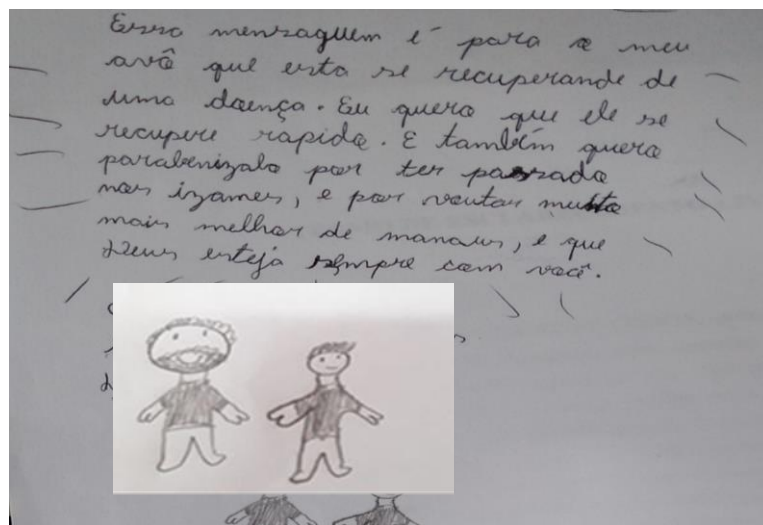 Essa mensaguem é para o meu
avô que esta se recuperando de
uma doença. Eu quero que ele se
recupere rapido. E também quero
parabenizalo por ter passado
nos izames, e por voutar muito
mais melhor de manaus, e que
Deus esteja sempre com você.